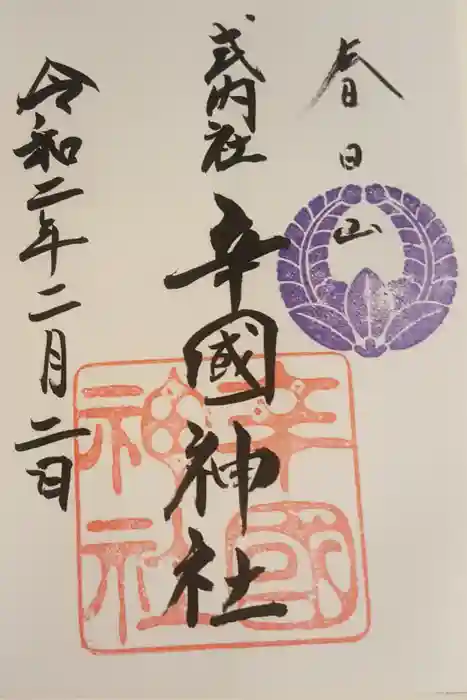 春日山
式内社
辛國神社
令和二年二月二日
辛國
神社